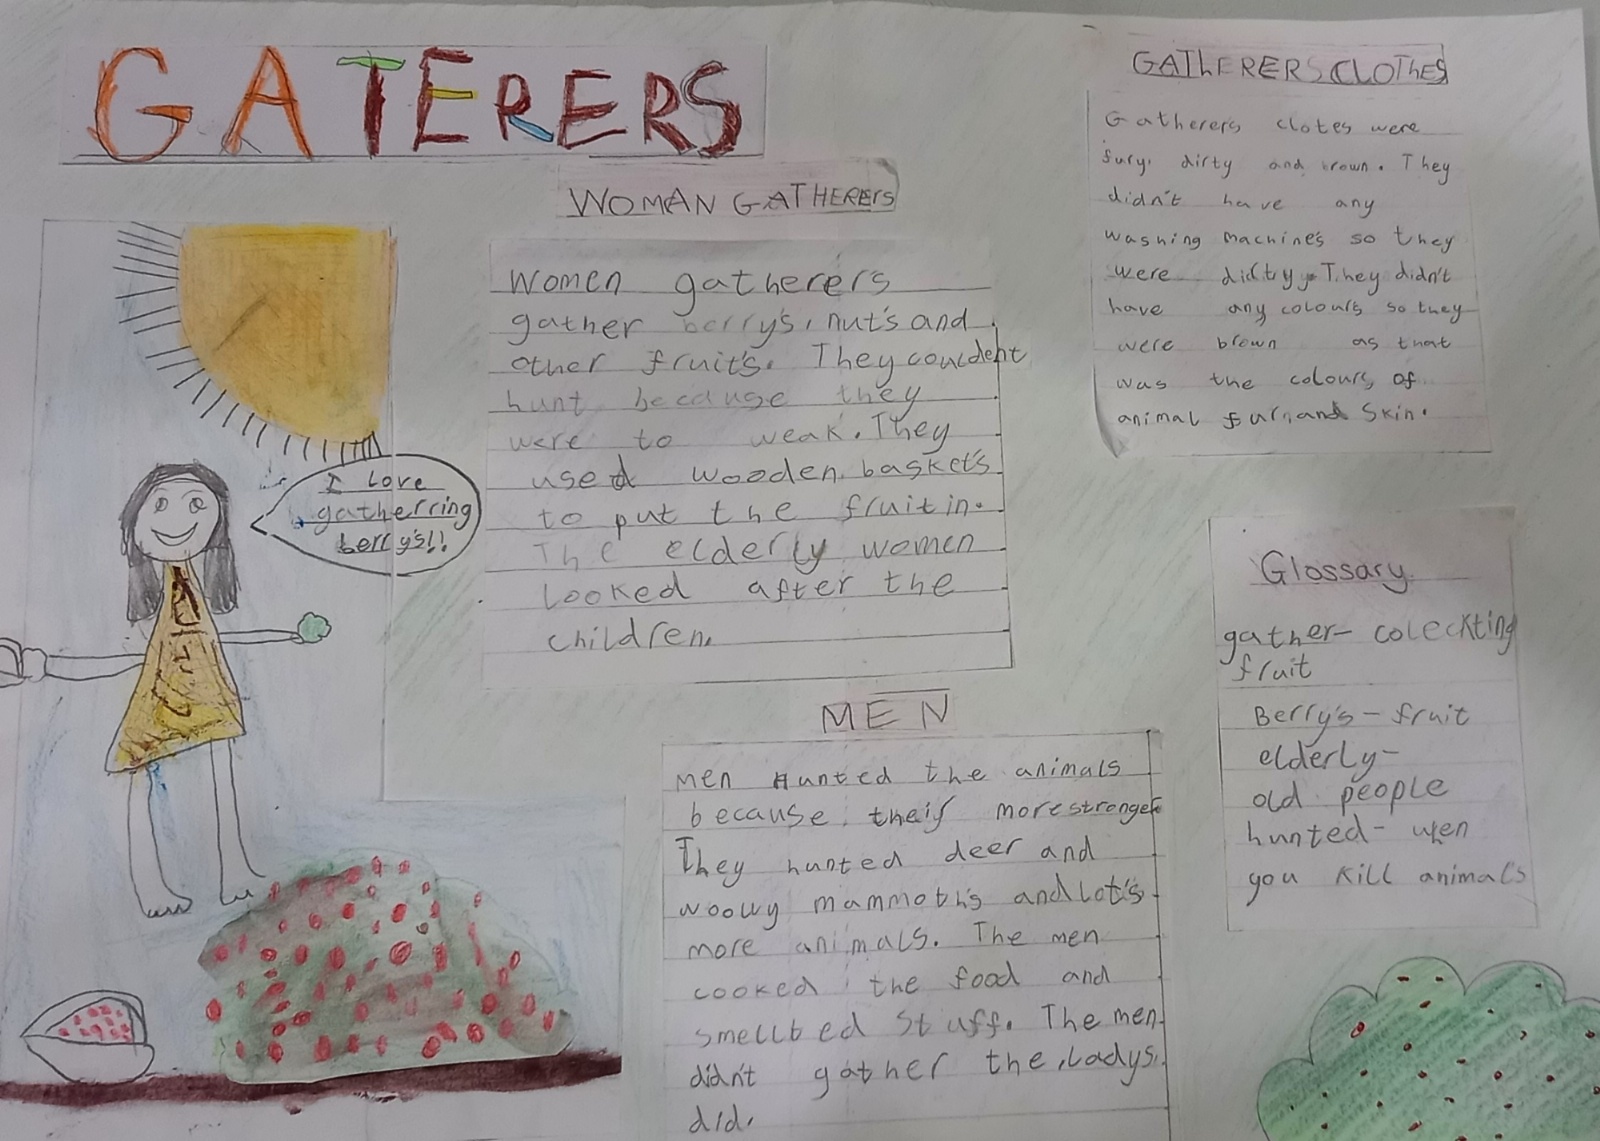 GATERERS
WOMAN GATHERERS
Women gatherers
gather berry's, nut's and
other fruit's. They couldent
hunt because they
were to weak. They
used wooden baskets
to put the fruit in.
The elderly women
looked after the
children.
I love
gatherring
berry's!!
MEN
Men Hunted the animals
because their more stronger
They hunted deer and
woolly mammoth's and lot's
more animals. The men
cooked the food and
stuff. The men
didn't gather the ladys
did.
GATHERERS CLOTHES
Gatherers clotes were
fury, dirty and brown. They
didn't have any
washing machine's so they
were dirty. They didn't
have any colours so they
were brown as that
was the colours of
animal fur and skin.
Glossary
gather- coleckting
fruit
Berry's- fruit
elderly-
old people
hunted- wen
you kill animals